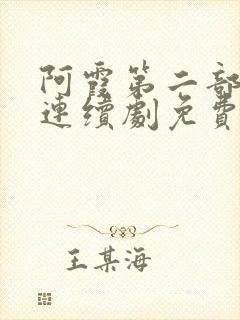 阿霞第二部
連續劇免費
王某海